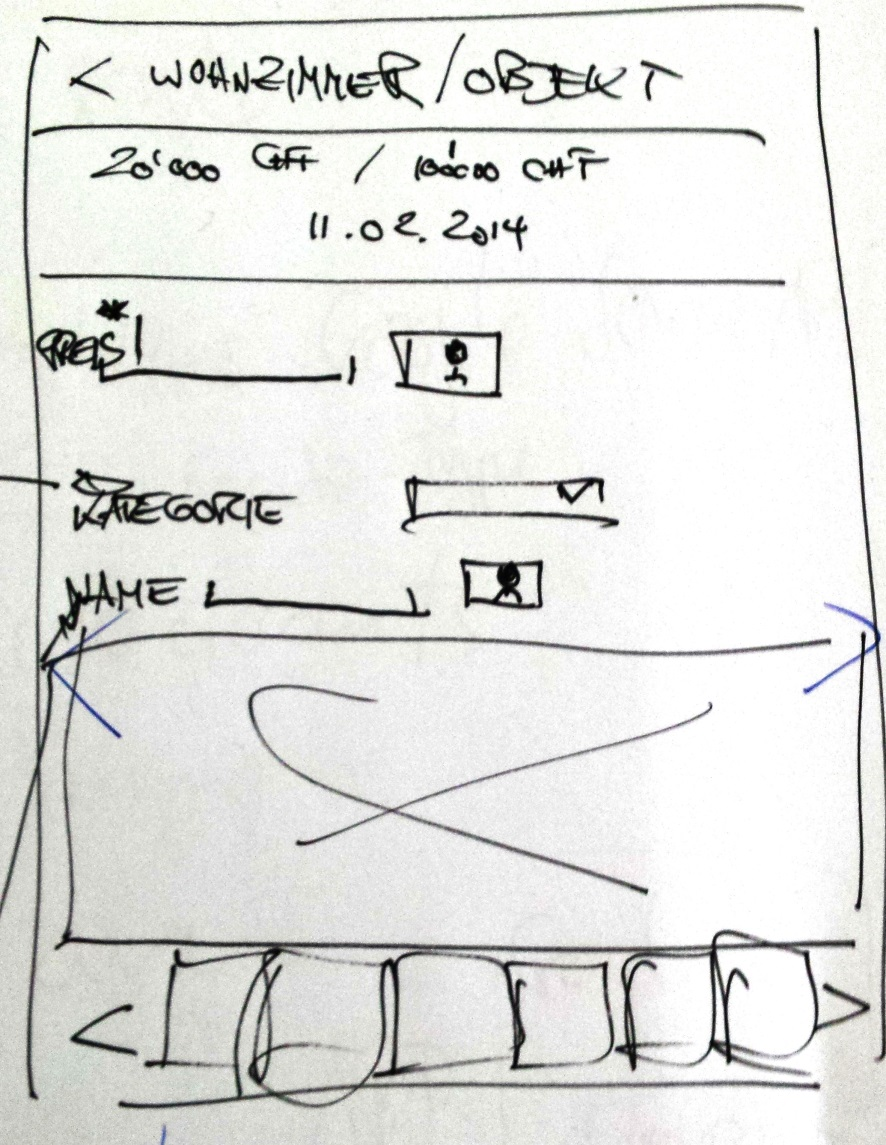 < WOHNZIMMER / OBJEKT
20'000 CHF / 100'000 CHF
11.02.2014
PREIS*
KATEGORIE
NAME